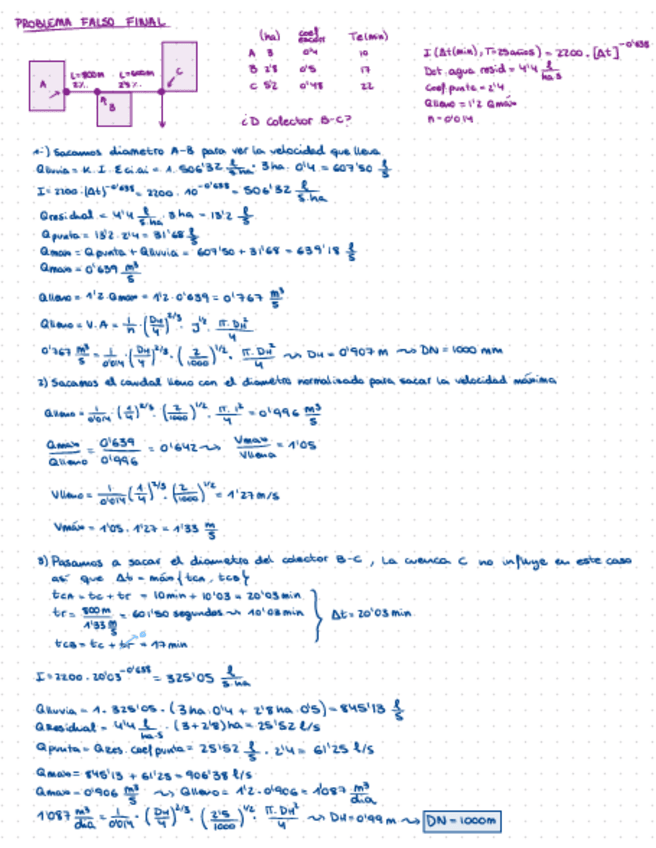 PROBLEMA FALSO FINAL
(ha) coef escorr Tc(min)
A 3 0'4 10
B 2'8 0'5 17
C 5'2 0'48 22
I (Δt(min), T=25años) = 2200·[Δt]^-0'638
Dot. agua resid = 4'4 l/ha·s
Coef. punta = 2'4
Qlleno = 1'2 Qmax
n = 0'014
A L=800m 2‰ B L=600m 2'5‰ C
¿D colector B-C?
1·) Sacamos diametro A-B para ver la velocidad que lleva
Qlluvia = K. I. Σci.ai = 1. 506'32 l/s·ha · 3ha. 0'4 = 607'50 l/s
I = 2200·(Δt)^-0'638 = 2200. 10^-0'638 = 506'32 l/s·ha
Qresidual = 4'4 l/s·ha · 3ha = 13'2 l/s
Qpunta = 13'2. 2'4 = 31'68 l/s
Qmax = Qpunta + Qlluvia = 607'50 + 31'68 = 639'18 l/s
Qmax = 0'639 m³/s
Qlleno = 1'2. Qmax = 1'2. 0'639 = 0'767 m³/s
Qlleno = V. A = 1/n · (DH/4)^2/3 · J^1/2 · π. DH²/4
0'767 m³/s = 1/0'014 · (DH/4)^2/3 · (2/1000)^1/2 · π. DH²/4 ⤳ DH = 0'907 m ⤳ DN = 1000 mm
2) Sacamos el caudal lleno con el diametro normalizado para sacar la velocidad máxima
Qlleno = 1/0'014 · (1/4)^2/3 · (2/1000)^1/2 · π. 1²/4 = 0'996 m³/s
Qmax/Qlleno = 0'639/0'996 = 0'642 ⤳ Vmax/Vllena = 1'05
Vlleno = 1/0'014 (1/4)^2/3 · (2/1000)^1/2 = 1'27 m/s
Vmáx = 1'05. 1'27 = 1'33 m/s
3) Pasamos a sacar el diametro del colector B-C, la cuenca C no influye en este caso
así que Δt = máx {tcA, tcB}
tcA = tc + tr = 10min + 10'03 = 20'03 min
tr = 800m / 1'33 m/s = 601'50 segundos ⤳ 10'03 min
Δt = 20'03 min
tcB = tc + tr⁰ = 17 min
I = 2200. 20'03^-0'638 = 325'05 l/s·ha
Qlluvia = 1. 325'05. (3ha. 0'4 + 2'8ha. 0'5) = 845'13 l/s
QResidual = 4'4 l/ha·s · (3+2'8)ha = 25'52 l/s
Qpunta = Qres. coef punta = 25'52 l/s · 2'4 = 61'25 l/s
Qmax = 845'13 + 61'25 = 906'38 l/s
Qmax = 0'906 m³/s ⤳ Qlleno = 1'2. 0'906 = 1'087 m³/dia
1'087 m³/dia = 1/0'014 · (DH/4)^2/3 · (2'5/1000)^1/2 · π. DH²/4 ⤳ DH = 0'99 m ⤳ DN = 1000m